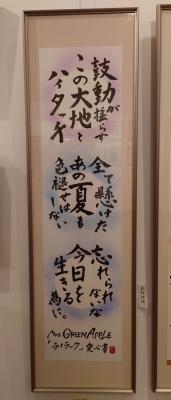 鼓動が
揺らす
この大地と
ハイタッチ
全て懸けた
あの夏も
色褪せはしない
忘れられないな
今日を
生きる
為に。
Mrs. GREEN APPLE
「ライラック」